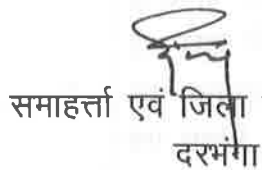 समाहर्त्ता एवं जिला
दरभंगा